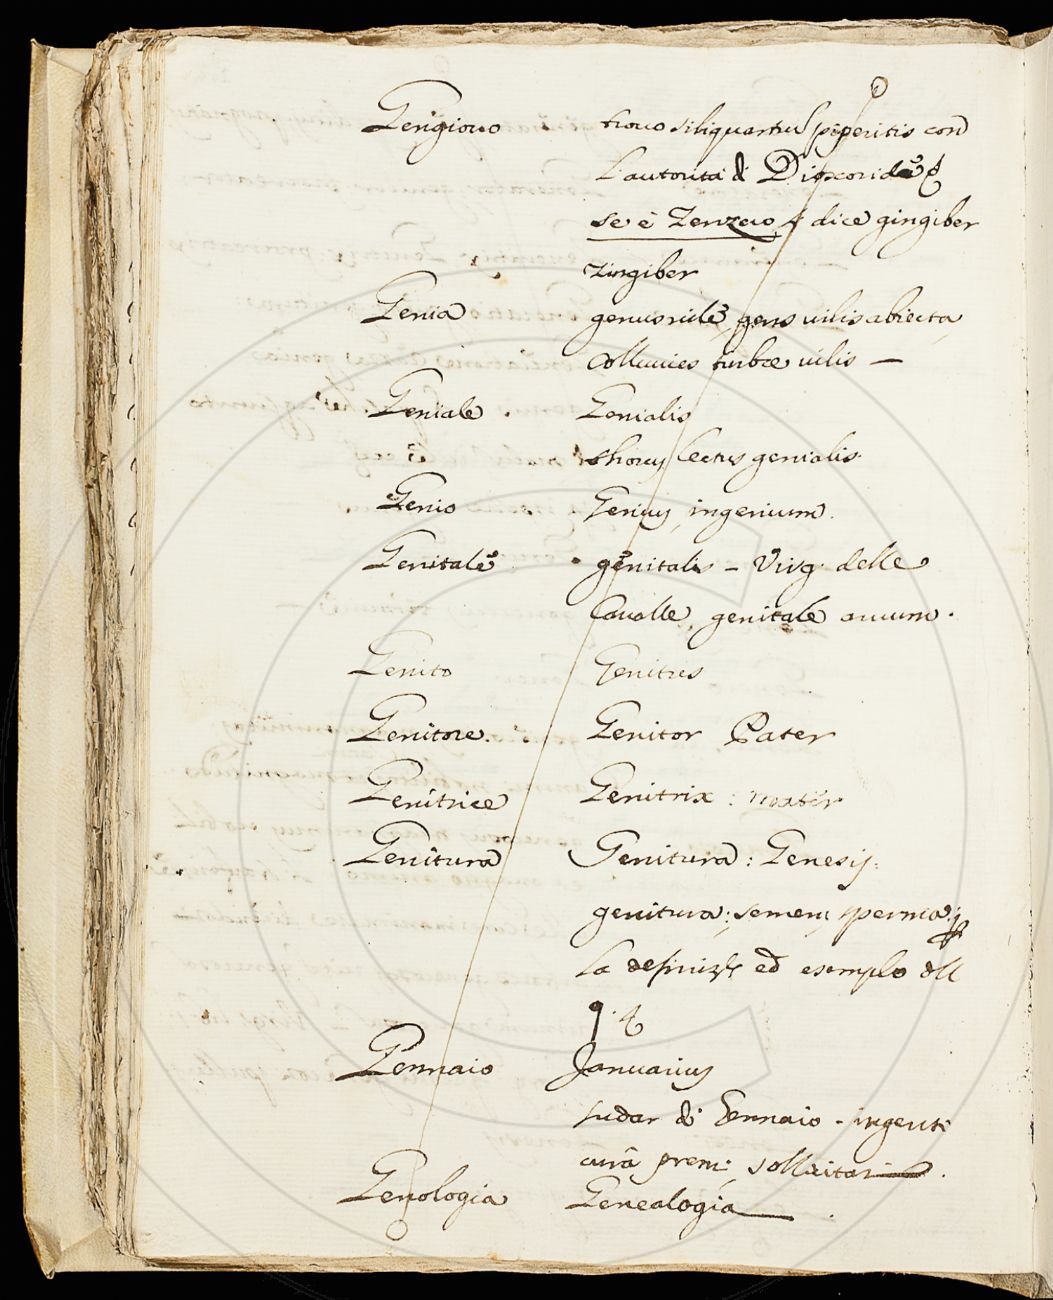 Gengiovo trovo siliquastru piperitis con
l'autorità di Dioscoride
se è Zenzero si dice gingiber
zingiber
Genia genus vile, gens vilis abiecta,
Colluvies turbae vilis —
Geniale. Genialis
thorus lectus genialis
Genio Genius, ingenium.
Genitale genitalis – Virg. delle
Cavalle, genitale arvum.
Genito Genitus
Genitore. Genitor Pater
Genitrice Genitrix : mater
Genitura Genitura : Genesis :
genitura ; semen, sperma ;
la ed esempio
Gennaio Januarius
sudar di Gennaio – ingenti
curâ premi, sollicitari.
Genologia Genealogia.